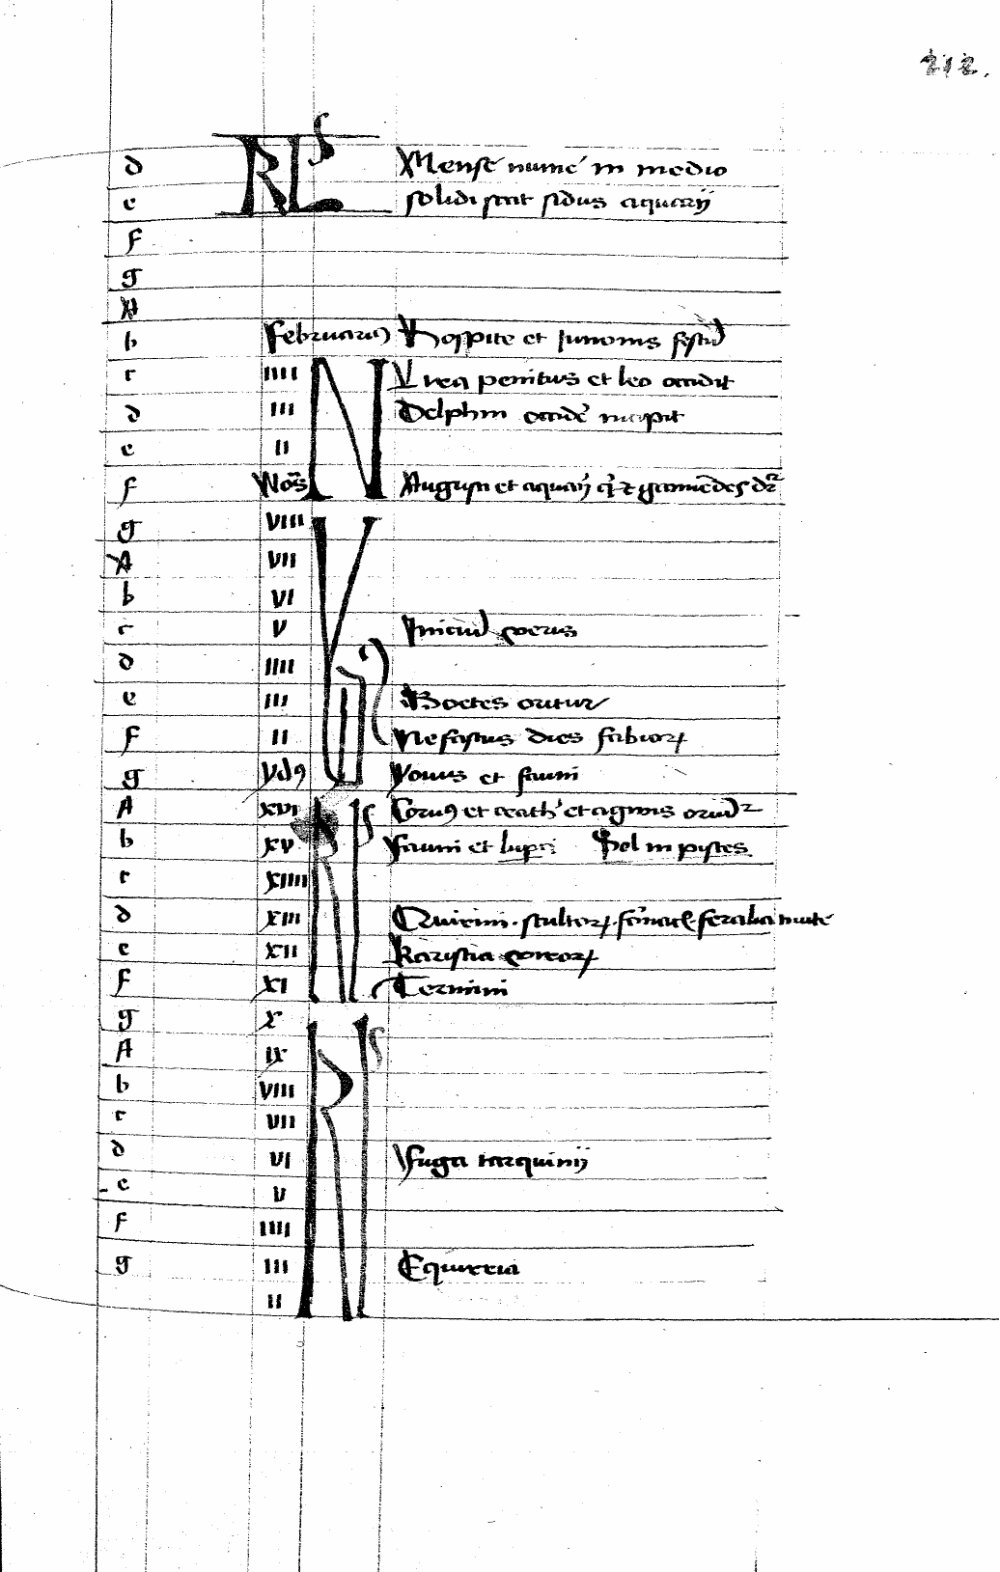 212.
d KL Mense numē in medio
e solidi stat sidus aquarij
f
g
A
b Februarius Hospite et Iunonis festū
c IIII N Lirea penitus et leo occidit
d III Delphin occidē incipit
e II
f Noās Augusti et aquarij qi z ganimēdes dr
g VIII
A VII
b VI
c V Iniciū veris
d IIII
e III Boetes oritur
f II Nefastus dies fabior
g yd9 Iovis et fauni
A XVI Corv9 et crath' et agnus oriūdr
b XV Fauni et luperci Sol in pisces
c XIIII
d XIII Quirini. stultor. feralia mute
e XII Karistia
f XI Termini
g X
A IX
b VIII
c VII
d VI Fuga tarquinij
e V
f IIII
g III Equirria
II